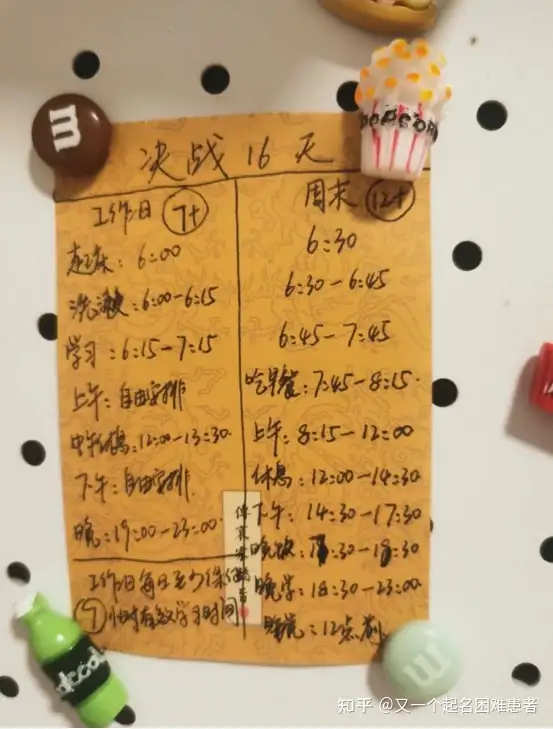 决战16天
工作日 7+
起床：6:00
洗漱：6:00-6:15
学习：6:15-7:15
上午：自由安排
中午休息：12:00-13:30
下午：自由安排
晚：19:00-23:00
工作日每日至少保证
7小时有效学习时间
周末 12+
6:30
6:30-6:45
6:45-7:45
吃早餐：7:45-8:15
上午：8:15-12:00
休息：12:00-14:30
下午：14:30-17:30
晚饭：17:30-18:30
晚学：18:30-23:00
睡觉：12点前
POPCORN
m
m
知乎 @又一个起名困难患者